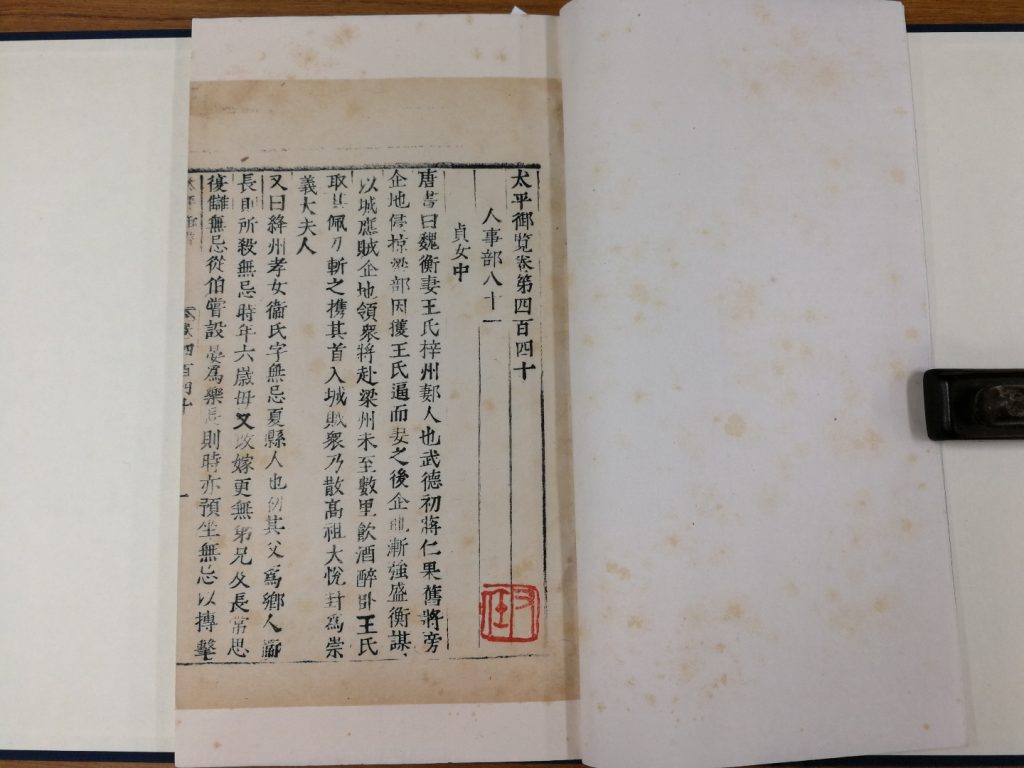 太平御覽卷第四百四十
人事部八十一
貞女中
唐書曰魏衡妻王氏梓州郪人也武德初薛仁杲舊將旁
企地侵掠梁部因獲王氏逼而妻之後企地漸強盛衡謀
以城應賊企地領衆將赴梁州未至數里飲酒醉卧王氏
取其佩刀斬之携其首入城賊衆乃散髙祖大悅封爲崇
義大夫人
又曰絳州孝女衞氏字無忌夏縣人也初其父爲鄕人衞
長則所殺無忌時年六歲母又改嫁更無弟兄及長常思
復讎無忌從伯嘗設宴爲樂長則時亦預坐無忌以摶擊
四百四十
一